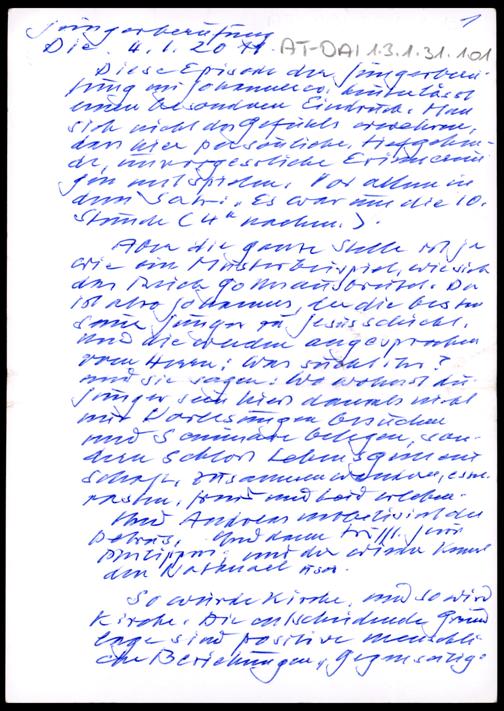 Jüngerberufung 1
Die. 4.1.20 AT-DAI 1.3.1.31.1.01
Diese Episode der Jüngerberu-
fung im Johannesev. hinterlässt
einen besonderen Eindruck. Man
sich nicht des Gefühls erwehren,
dass hier persönliche, tiefgehen-
de, unvergessliche Erinnerun-
gen mitspielen. Vor allem in
dem Satz: „Es war um die 10.
Stunde (4ʰ nachm.).
Aber die ganze Stelle ist ja
wie ein Musterbeispiel, wie sich
das Reich Gottes ausbreitet. Da
ist also Johannes, der die besten
seine Jünger zu Jesus schickt.
Und die werden angesprochen
vom Herrn: Was sucht ihr?
und sie sagen: Wo wohnst du.
Jünger sein hiess damals nicht
nur Vorlesungen besuchen
und Seminare belegen, son-
dern schloss Lebensgemein
schaft, zusammen wandern, essen
rasten, Freud und Leid erleben.
Und Andreas mobilisiert den
Petrus, und dann trifft Jesus
Philippus, und der wieder kennt
den Natanael usw.
So wurde Kirche, und so wird
Kirche. Die entscheidende Grund
lage sind positive menschli
che Beziehungen, gegenseitige